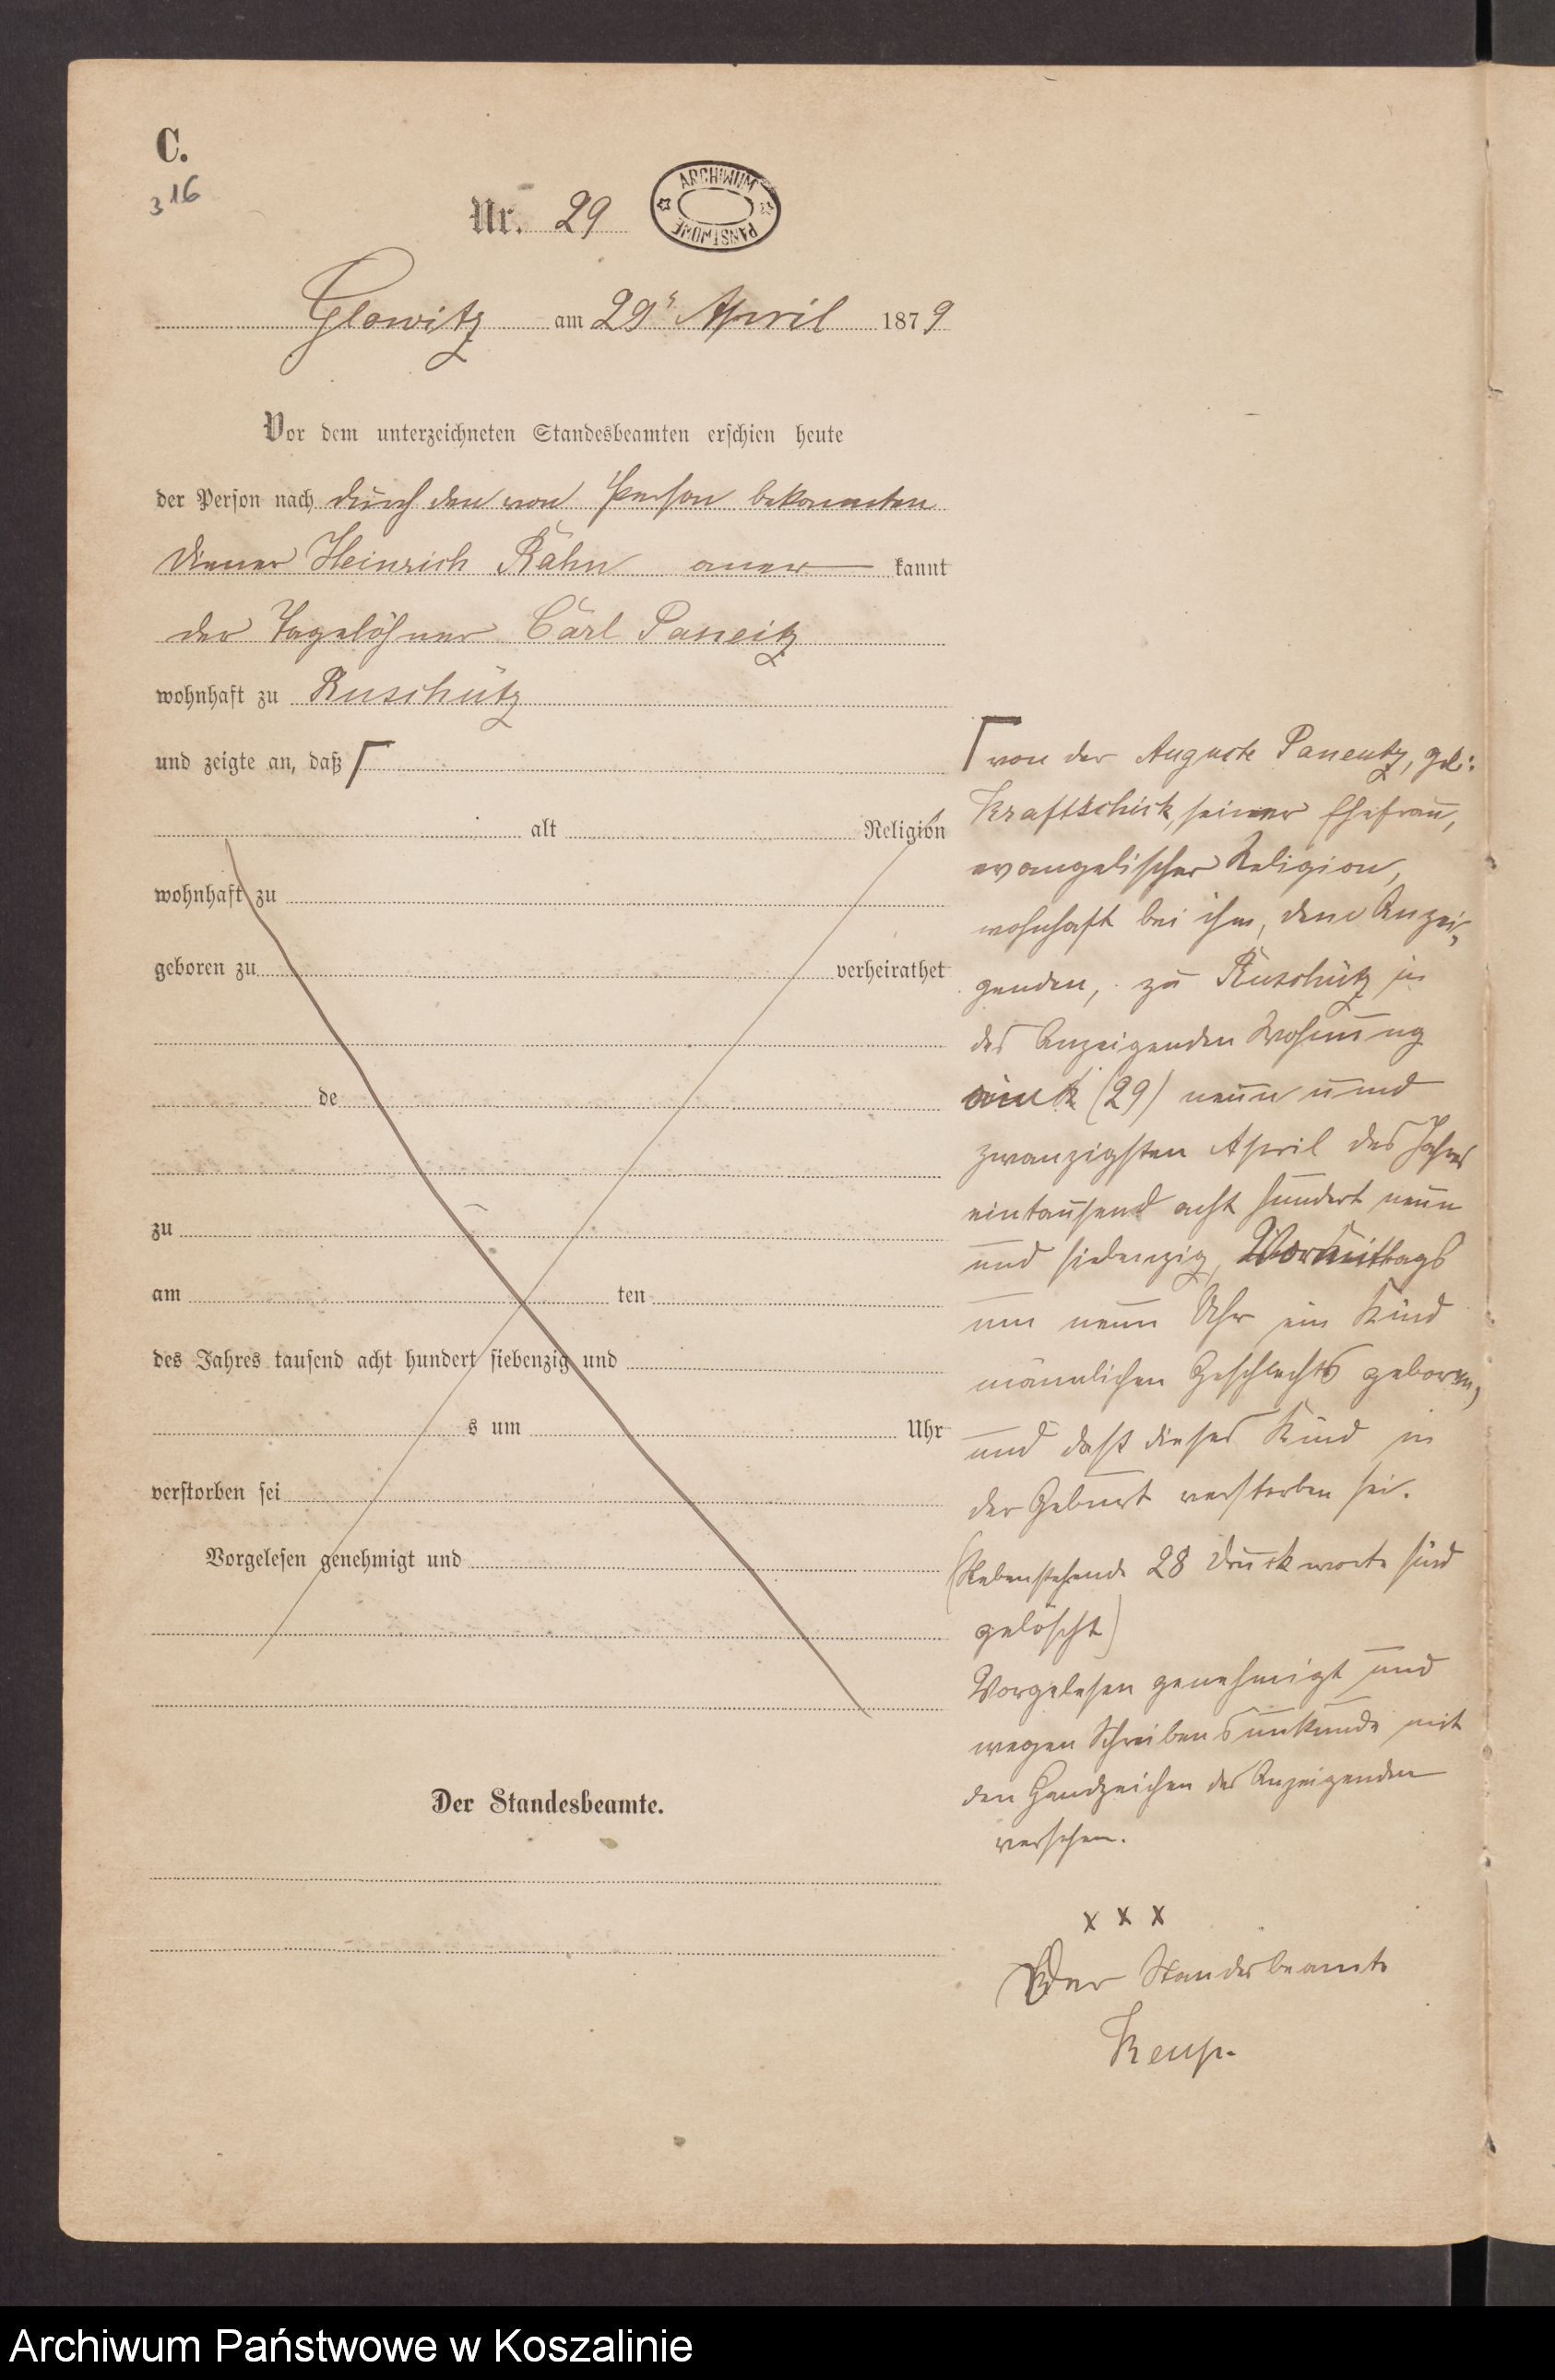 C.
316
Nr. 29
ARCHIWUM PAŃSTWOWE
Glowitz am 29ⁿ April 1879
Vor dem unterzeichneten Standesbeamten erschien heute
der Person nach durch den von Person bekannten
Diener Heinrich Rahn aner kannt
der Tagelöhner Carl Paneitz
wohnhaft zu Ruschütz
und zeigte an, daß
alt Religion
wohnhaft zu
geboren zu verheirathet
de
zu
am ten
des Jahres tausend acht hundert siebenzig und
s um Uhr
verstorben sei
Vorgelesen genehmigt und
Der Standesbeamte.
von der Auguste Paneitz, geb:
Kraftschick, seiner Ehefrau,
evangelischer Religion,
wohnhaft bei ihm, dem Anzei-
genden, zu Ruschütz in
des Anzeigenden Wohnung
am (29) neun und
zwanzigsten April des Jahres
eintausend acht hundert neun
und siebenzig, Vormittags
um neun Uhr ein Kind
männlichen Geschlechts geboren,
und daß dieses Kind in
der Geburt verstorben sei.
(Nebenstehende 28 Druckworte sind
gelöscht)
Vorgelesen genehmigt und
wegen Schreibensunkunde mit
den Handzeichen des Anzeigenden
versehen.
x x x
Der Standesbeamte
Archiwum Państwowe w Koszalinie